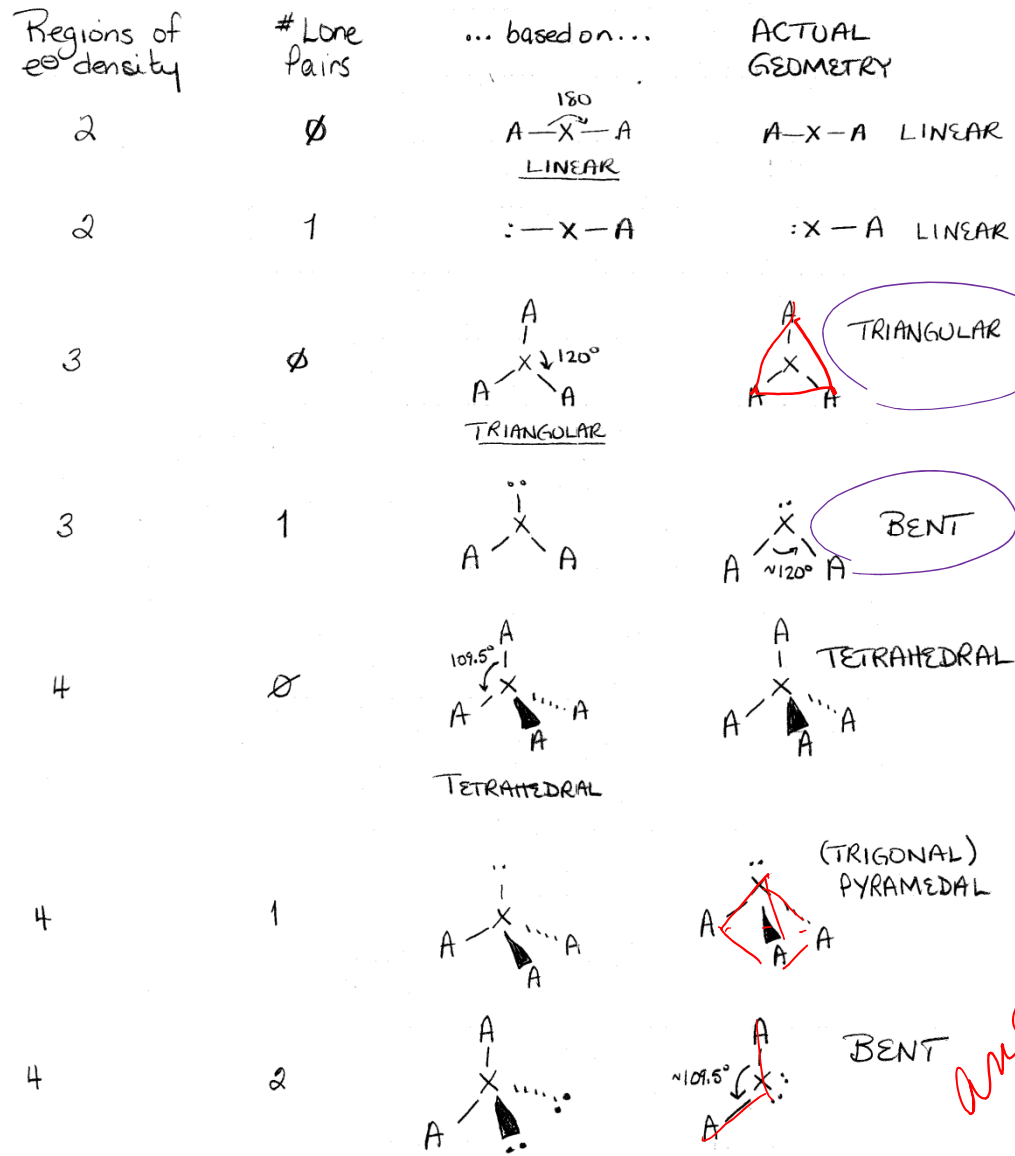 Regions of e⊖ density
# Lone Pairs
... based on ...
ACTUAL GEOMETRY
2
Ø
180
A—X—A
LINEAR
A—X—A LINEAR
2
1
:—X—A
:X—A LINEAR
3
Ø
A
X 120°
A A
TRIANGULAR
A
X
A A
TRIANGULAR
3
1
..
X
A A
..
X
A ~120° A
BENT
4
Ø
A
109.5°
X
A A
A
TETRAHEDRAL
A
X
A A
A
TETRAHEDRAL
4
1
..
X
A A
A
..
X
A A
A
(TRIGONAL)
PYRAMEDAL
4
2
A
X
A
..
..
A
~109.5°
X:
..
A
BENT